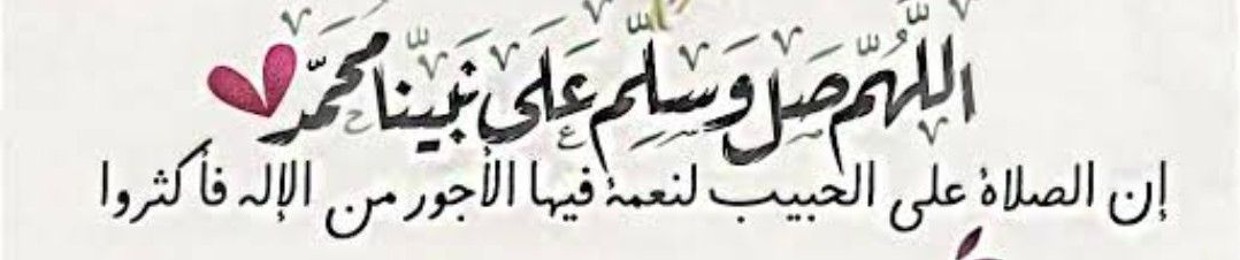 اللهم صل وسلم على نبينا محمد
إن الصلاة على الحبيب لنعمة فيها الأجور من الإله فأكثروا